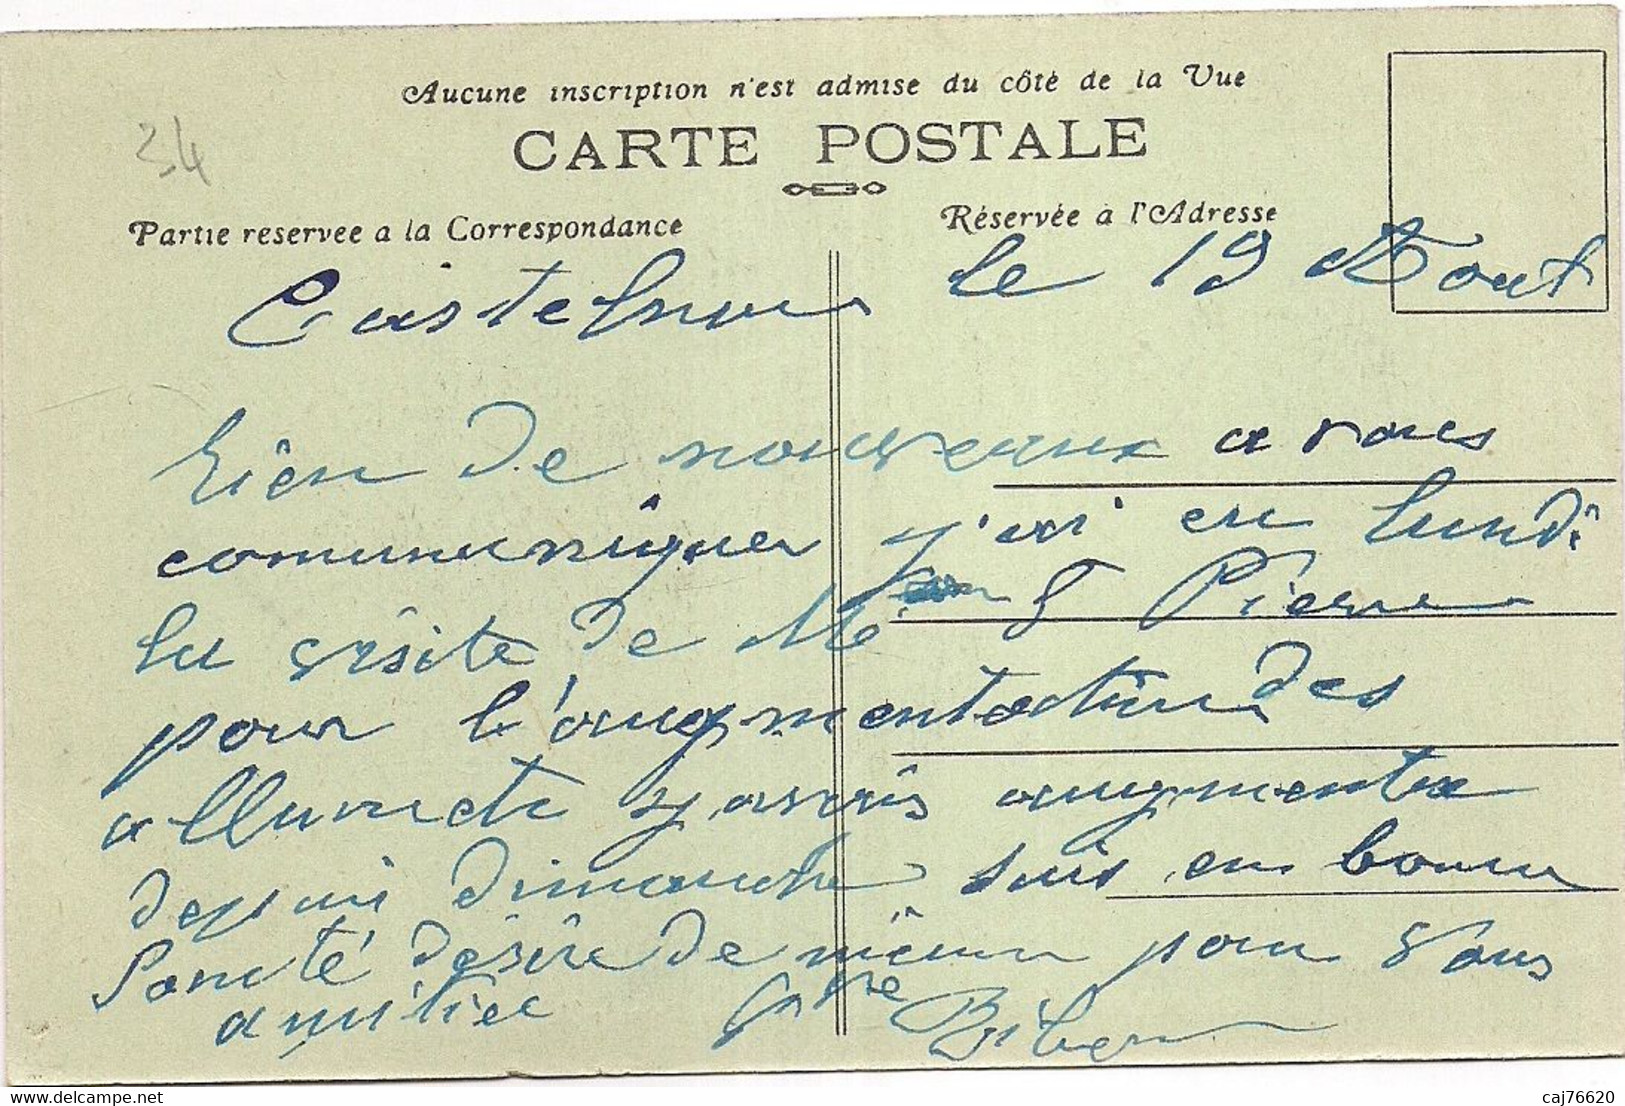 34
Aucune inscription n'est admise du côté de la Vue
CARTE POSTALE
Partie reservee a la Correspondance
Réservée à l'Adresse
le 19 Aout
rien de nouveaux a vous
communniquer j'ai eu lundi
la visite de Mr Pierre
pour l'augmentation des
allumete y avais augmenter
depuis dimanche suis en bonne
Santé désire de même pour vous
amitiee
Delcampe.net
caj76620